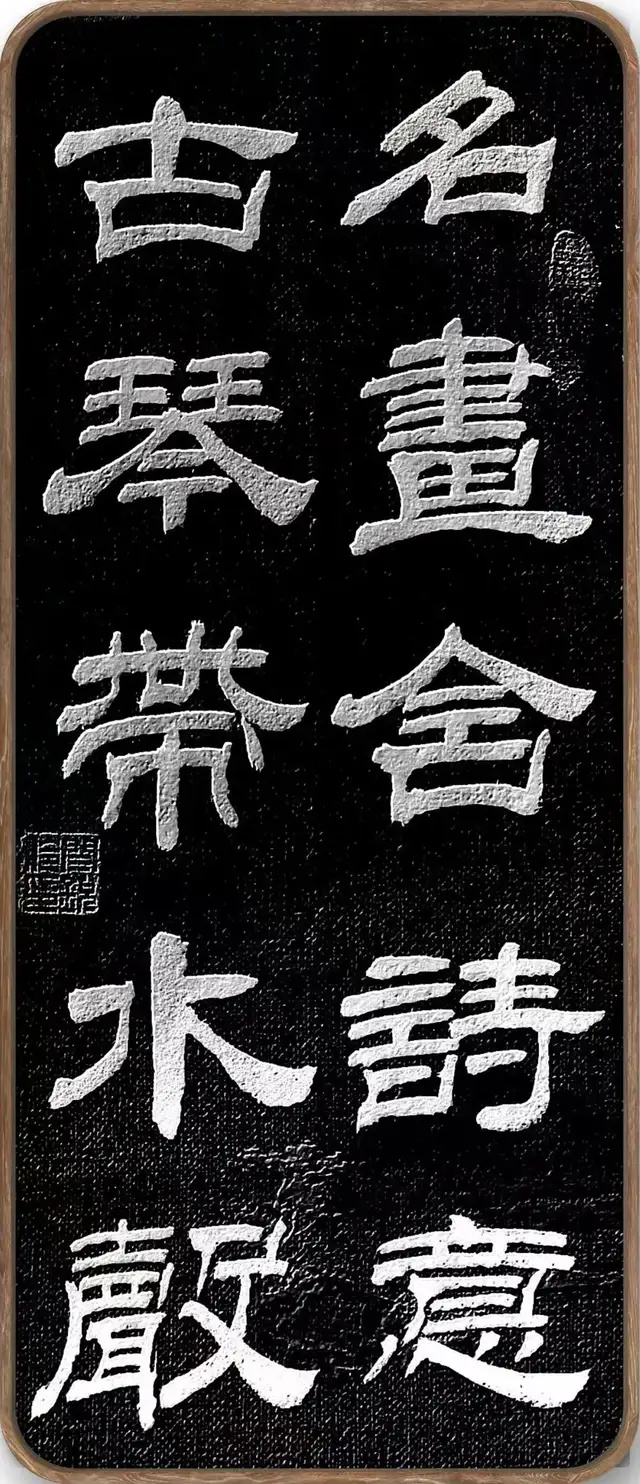 名畫含詩意
古琴帶水聲